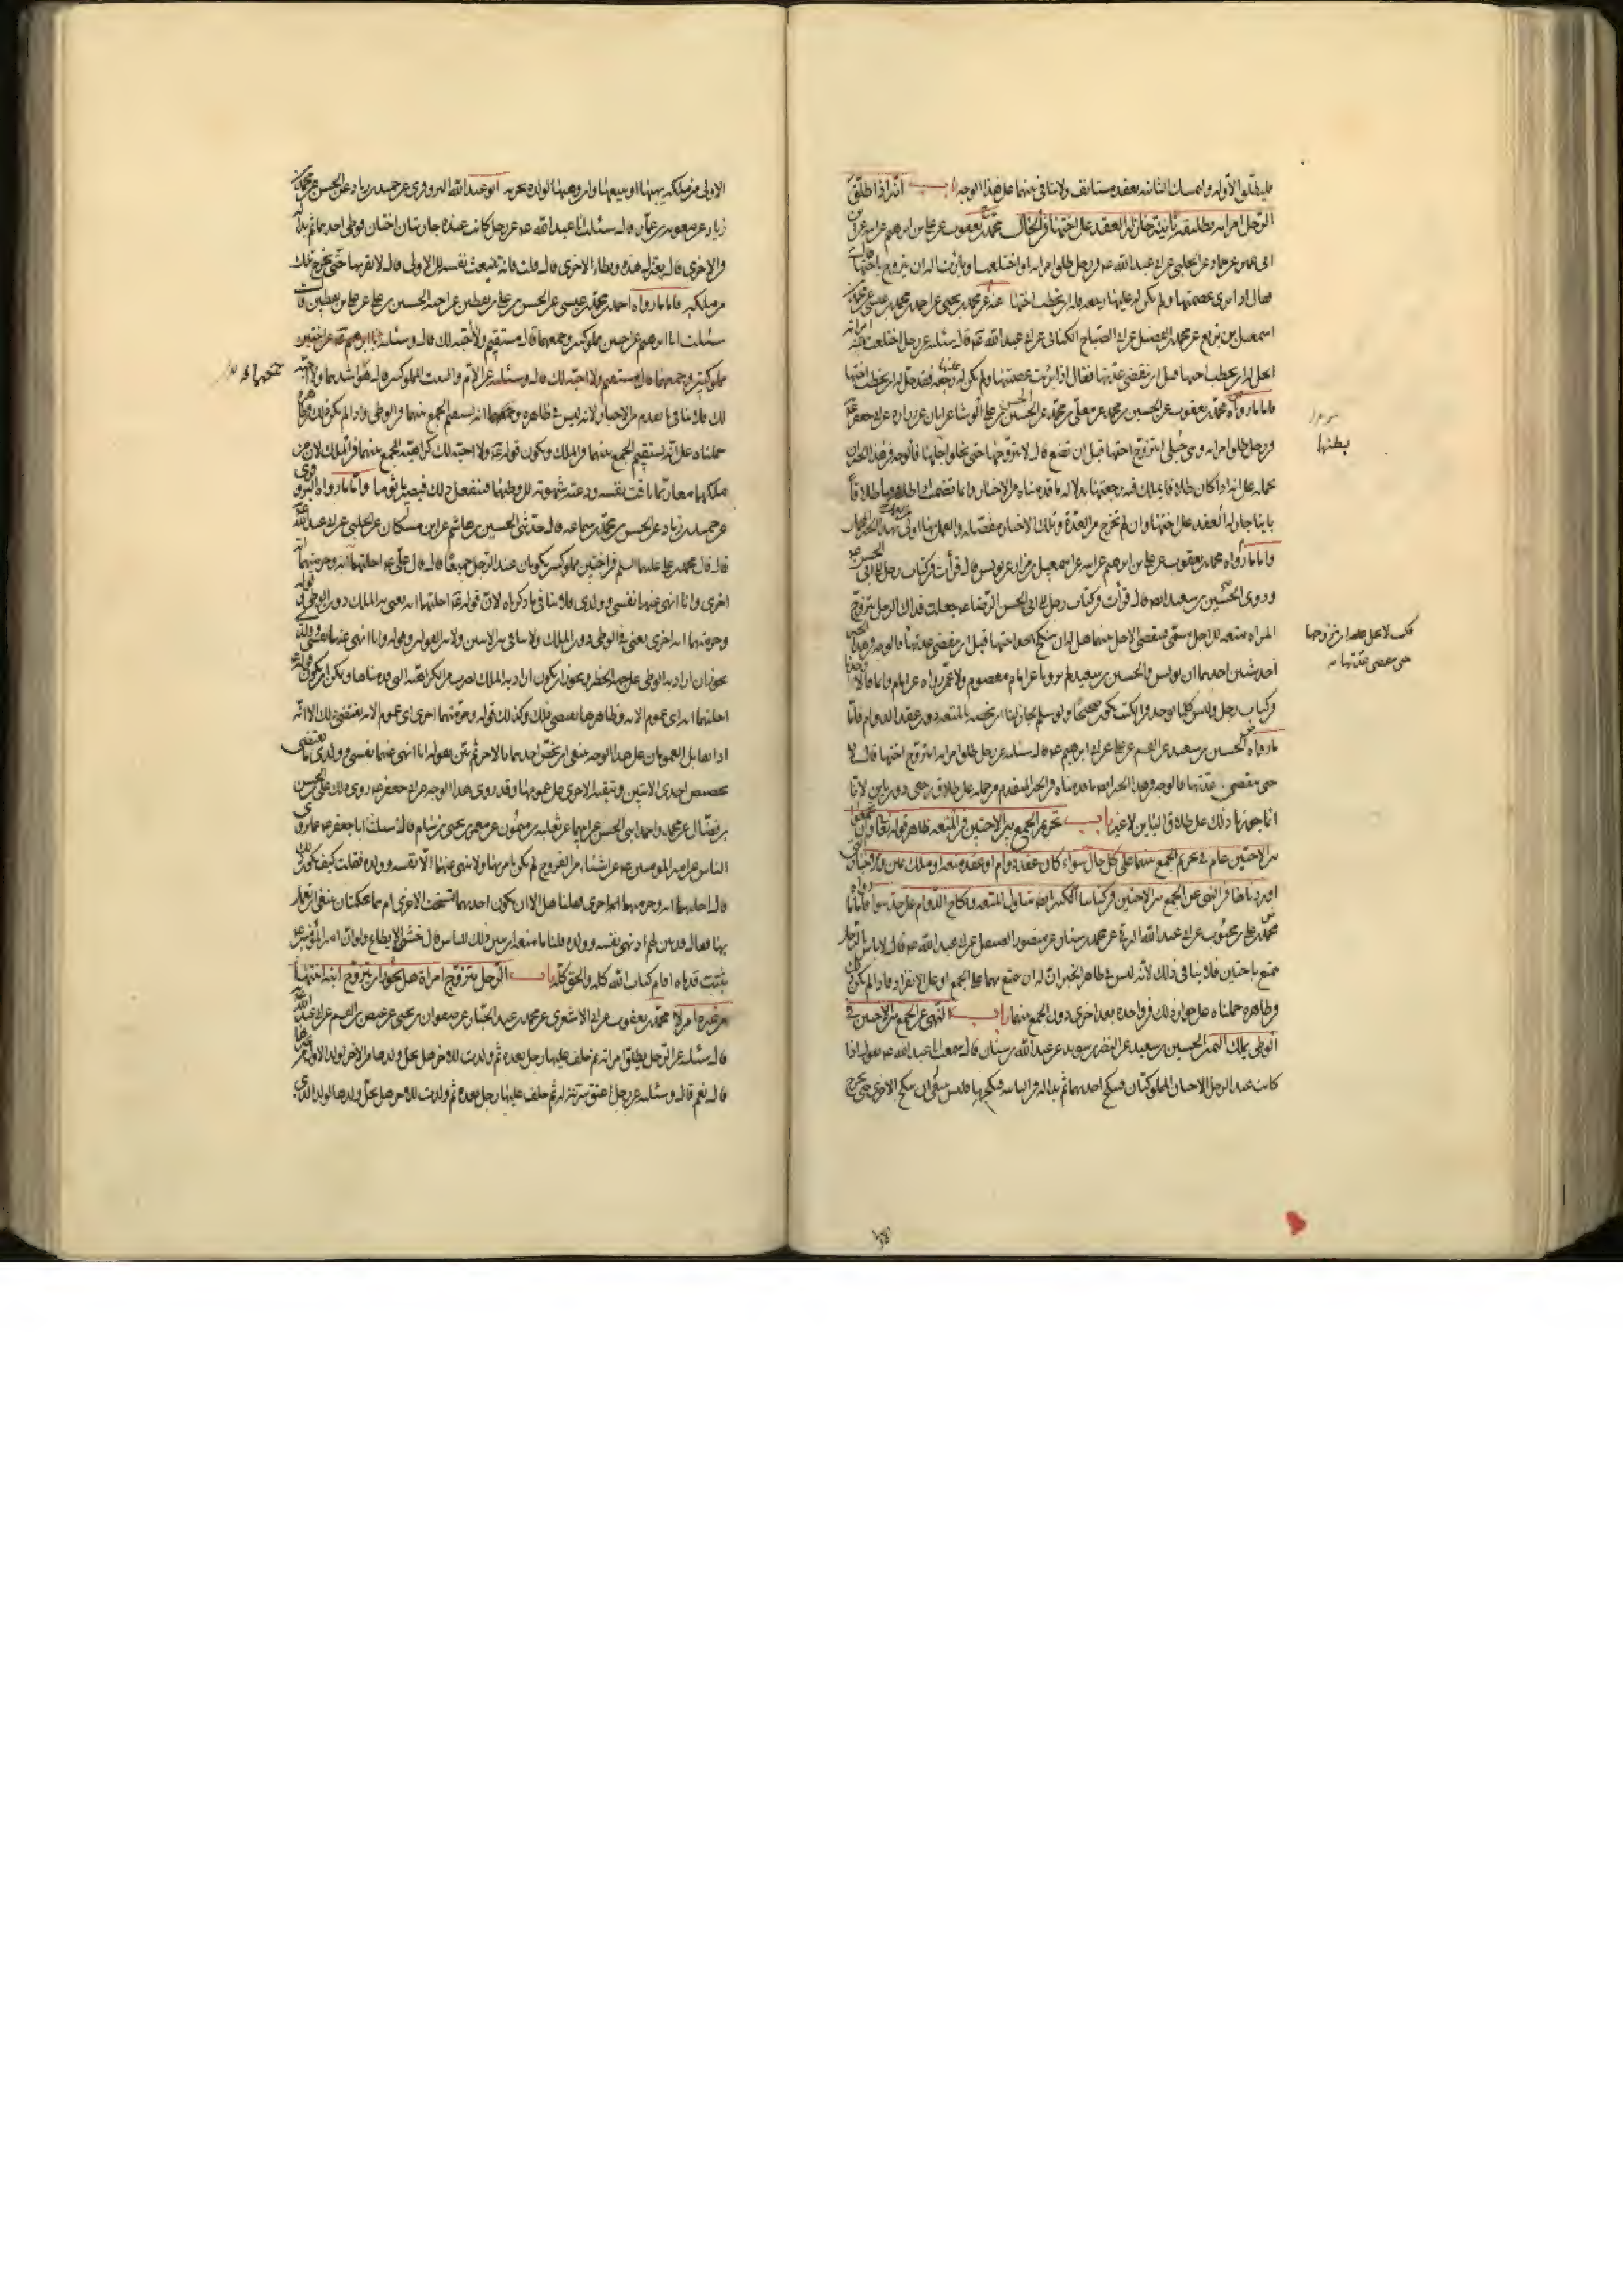 فليطلق الأولة وامساك الثانية بعقد مستانف ولا ينافي بينهما على هذا الوجه باب انه اذا طلق
الرجل امراته تطليقة باينة جاز له العقد على اختها في الحال محمد بن يعقوب عن علي بن ابرهيم عن ابيه عن ابن
ابي عمير عن حماد عن الحلبي عن ابي عبد الله عه في رجل طلق امراته او اختلعت او بانت اله ان يتزوج باختها
فقال اذا برئ عصمتها ولم يكن له عليها رجعة فله ان يخطب اختها عنه عن محمد بن يحيى عن احمد بن محمد بن عيسى عن محمد بن
اسمعيل بن بزيع عن محمد بن الفضيل عن ابي الصباح الكناني عن ابي عبد الله عه قال سئلته عن رجل اختلعت منه امراته
ايحل له ان يخطب اختها قبل ان تنقضي عدتها فقال اذا برئت عصمتها ولم يكن له عليها رجعة فقد حل له ان يخطب اختها
فاما ما رواه محمد بن يعقوب عن الحسين بن محمد عن معلى بن محمد عن الحسن بن علي الوشا عن ابان عن زرارة عن ابي جعفر عه
في رجل طلق امراته وهي حبلى ايتزوج اختها قبل ان تضع قال لا يتزوجها حتى يخلو اجلها فالوجه في هذا الخبر ان
نحمله على انه اذا كان طلاقا يملك فيه رجعتها بدلالة ما قدمناه من الاخبار وانها تضمنت اذا طلقها طلاقا
باينا جاز له العقد على اختها وان لم تخرج من العدة وتلك الاخبار مفصلة والعمل بها اولى
واما ما رواه محمد بن يعقوب عن علي بن ابرهيم عن ابيه عن اسمعيل بن مرار عن يونس قال قرأت في كتاب رجل الى ابي الحسن عه
وروى الحسين بن سعيد ايضا قال قرأت في كتاب رجل الى ابي الحسن الرضا عه جعلت فداك الرجل يتزوج
المراة متعة الى اجل مسمى فينقضي الاجل بينهما هل له ان ينكح اختها قبل ان تنقضي عدتها فالوجه في هذا الخبر
احد شيئين احدهما ان يونس والحسين بن سعيد لم يرويا عن امام معصوم ولا عمن رواه عن امام وانما قالا وجدنا
في كتاب رجل وليس كلما يوجد في الكتب يكون صحيحا ولو سلم لجاز لنا ان نخصه بالمتعة دون عقد الدوام فاما
ما رواه الحسين بن سعيد عن القسم عن علي عن ابي ابرهيم عه قال سئلته عن رجل طلق امراته ايتزوج اختها قال لا
حتى تنقضي عدتها فالوجه في هذا الخبر ايضا ما قدمناه في الخبر المتقدم من حمله على طلاق رجعي دون باين لانا
انما جوزنا ذلك على طلاق الباين لا غير باب تحريم الجمع بين الاختين في المتعة ظاهر قوله تعالى وان تجمعوا
بين الاختين عام في تحريم الجمع بينهما على كل حال سواء كان عقد دوام او عقد متعة او ملك يمين
اوردناها في النهي عن الجمع بين الاختين في كتابنا الكبير ايضا يتناول المتعة ونكاح الدوام على حد سواء فاما ما رواه
محمد بن علي بن محبوب عن ابي عبد الله البرقي عن محمد بن سنان عن منصور الصيقل عن ابي عبد الله عه قال لا باس بالرجل
يتمتع باختين فلا ينافي ذلك لانه ليس في ظاهر الخبر ان له ان يتمتع بهما على الجمع او على الانفراد فاذا لم يكن ذلك
في ظاهره حملناه على جواز ذلك في واحدة بعد اخرى دون الجمع بينهما باب النهي عن الجمع بين الاختين في
الوطي بملك اليمين الحسين بن سعيد عن النضر بن سويد عن عبد الله بن سنان قال سمعت ابا عبد الله عه يقول اذا
كانت عند الرجل الاختان المملوكتان فنكح احديهما ثم بدا له في الثانية فنكحها فليس ينبغي ان ينكح الاخرى حتى تخرج
بطنها
فكتب لا يحل له ان يتزوجها
حتى تنقضي عدتها
الاولى من ملكه يهبها او يبيعها وان وهبها لولده يجزيه ابو عبد الله البزوفري عن حميد بن زياد عن الحسن عن محمد بن
زياد عن معوية بن عمار قال سئلت ابا عبد الله عه عن رجل كانت عنده جاريتان اختان فوطئ احديهما ثم بدا له
في الاخرى قال يعتزل هذه ويطأ الاخرى قال قلت فانه تنبعث نفسه الى الاولى قال لا يقربها حتى تخرج تلك
من ملكه فاما ما رواه احمد بن محمد بن عيسى عن الحسن بن علي بن يقطين عن اخيه الحسين بن علي عن علي بن يقطين قال
سئلت ابا ابرهيم عن اختين مملوكتين وجمعهما قال مستقيم ولا احبه لك قال وسئلته عن الام والبنت المملوكتين قال هو اشدهما ولا احبه
لك فلا ينافي ما تقدم من الاخبار لانه ليس في ظاهره وجمعهما انه يستقيم الجمع بينهما في الوطي واذا لم يكن ذلك في ظاهره
حملناه على انه يستقيم الجمع بينهما في الملك ويكون قوله عه ولا احبه لك كراهية الجمع بينهما في الملك لان من
ملكهما معا ربما تاقت نفسه ودعته شهوته الى وطيهما فيفعل ذلك فيصير ماثوما واما ما رواه البزوفري
عن حميد بن زياد عن الحسن بن محمد بن سماعة قال حدثني الحسين بن هاشم عن ابن مسكان عن الحلبي عن ابي عبد الله عه
قال قال محمد بن علي عليهما السلم في اختين مملوكتين يكونان عند الرجل جميعا قال قال علي عه احلتهما اية وحرمتهما اية
اخرى وانا انهى عنهما نفسي وولدي فلا ينافي ما ذكرناه لان قوله عه احلتهما اية يعني به الملك دون الوطي وقوله
وحرمتهما اية اخرى يعني في الوطي دون الملك ولا تنافي بين الايتين ولا بين القولين وقوله وانا انهى عنهما نفسي وولدي
يجوز ان اراد به الوطي على جهة الحظر ويجوز ان يكون اراد به الملك لضرب من الكراهية التي قدمناها ويمكن ان يكون قوله عه
احلتهما اية اي عموم الاية وظاهرها يقتضي ذلك وكذلك قوله وحرمتهما اخرى اي عموم الاية يقتضي ذلك الا انه
اذا تقابل العمومان على هذا الوجه ينبغي ان يخص احدهما بالاخر ثم بين بقوله انا انهى عنهما نفسي وولدي ما يقتضي
تخصيص احدى الايتين وتبقية الاخرى على عمومها وقد روى هذا الوجه عن ابي جعفر عه روى ذلك علي بن الحسن
بن فضال عن محمد واحمد ابني الحسن عن ابيهما عن ثعلبة بن ميمون عن معمر بن يحيى بن بسام قال سئلت ابا جعفر عه عما يروى
الناس عن امير المؤمنين عه عن اشياء من الفروج لم يكن يامر بها ولا ينهى عنها الا نفسه وولده فقلت كيف يكون ذلك
قال احلتهما اية وحرمتهما اية اخرى فقلنا هل الا ان يكون احديهما نسخت الاخرى ام هما محكمتان ينبغي ان يعمل
بهما فقال قد بين لهم اذ نهى نفسه وولده قلنا ما منعه ان يبين ذلك للناس قال خشي الا يطاع ولو ان امير المؤمنين عه
ثبتت قدماه اقام كتاب الله كله والحق كله باب الرجل يتزوج امراة هل يجوز ان يتزوج ابنه ابنتها
من غيره ام لا محمد بن يعقوب عن ابي علي الاشعري عن محمد بن عبد الجبار عن صفوان بن يحيى عن عيص بن القسم عن ابي عبد الله عه
قال سئلته عن الرجل يطلق امراته ثم خلف عليها رجل بعده ثم ولدت للاخر هل يحل ولدها من الاخر لولد الاول من غيرها
قال نعم قال وسئلته عن رجل اعتق سرية له ثم خلف عليها رجل بعده ثم ولدت للاخر هل يحل ولدها لولد الذي